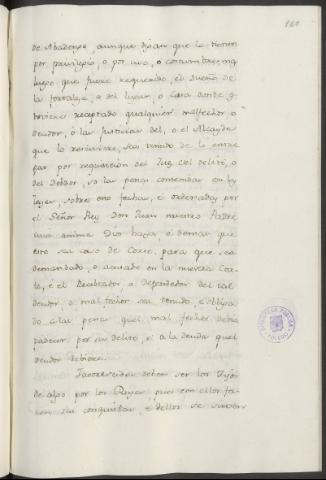 160
de Abadengo, aunque digan que lo tienen
por privilegio, o por uso, o costumbre; ma
luego que fuere requerido, el dueño de
la fortaleza, o del lugar, o Casa donde se
hoviere receptado qualquier malfechor o
deudor, o las justicias del, o el Alcayde
que lo recibiere, sea tenudo de lo entre
gar por requisicion del Juez del delito, o
del Deudor, so las penas contenidas en las
leyes, sobre esto fechas, e ordenadas por
el Señor Rey Don Juan nuestro Padre
cuia anima Dios haya, e demas que
esto sea caso de Corte, para que sea
demandado, o acusado en la nuestra Cor
te, é el Receptador, o Defendedor del tal
deudor, o mal fechor sea tenudo, e obliga
do a la pena quel mal fechor debia
padecer por su delito, é a la deuda quel
deudor debiere.
Favorecidos deben ser los Fijos
de algo por los Reyes, pues con ellos fa
cen sus conquistas, e dellos se sirven
BIBLIOTECA PUBLICA
TOLEDO